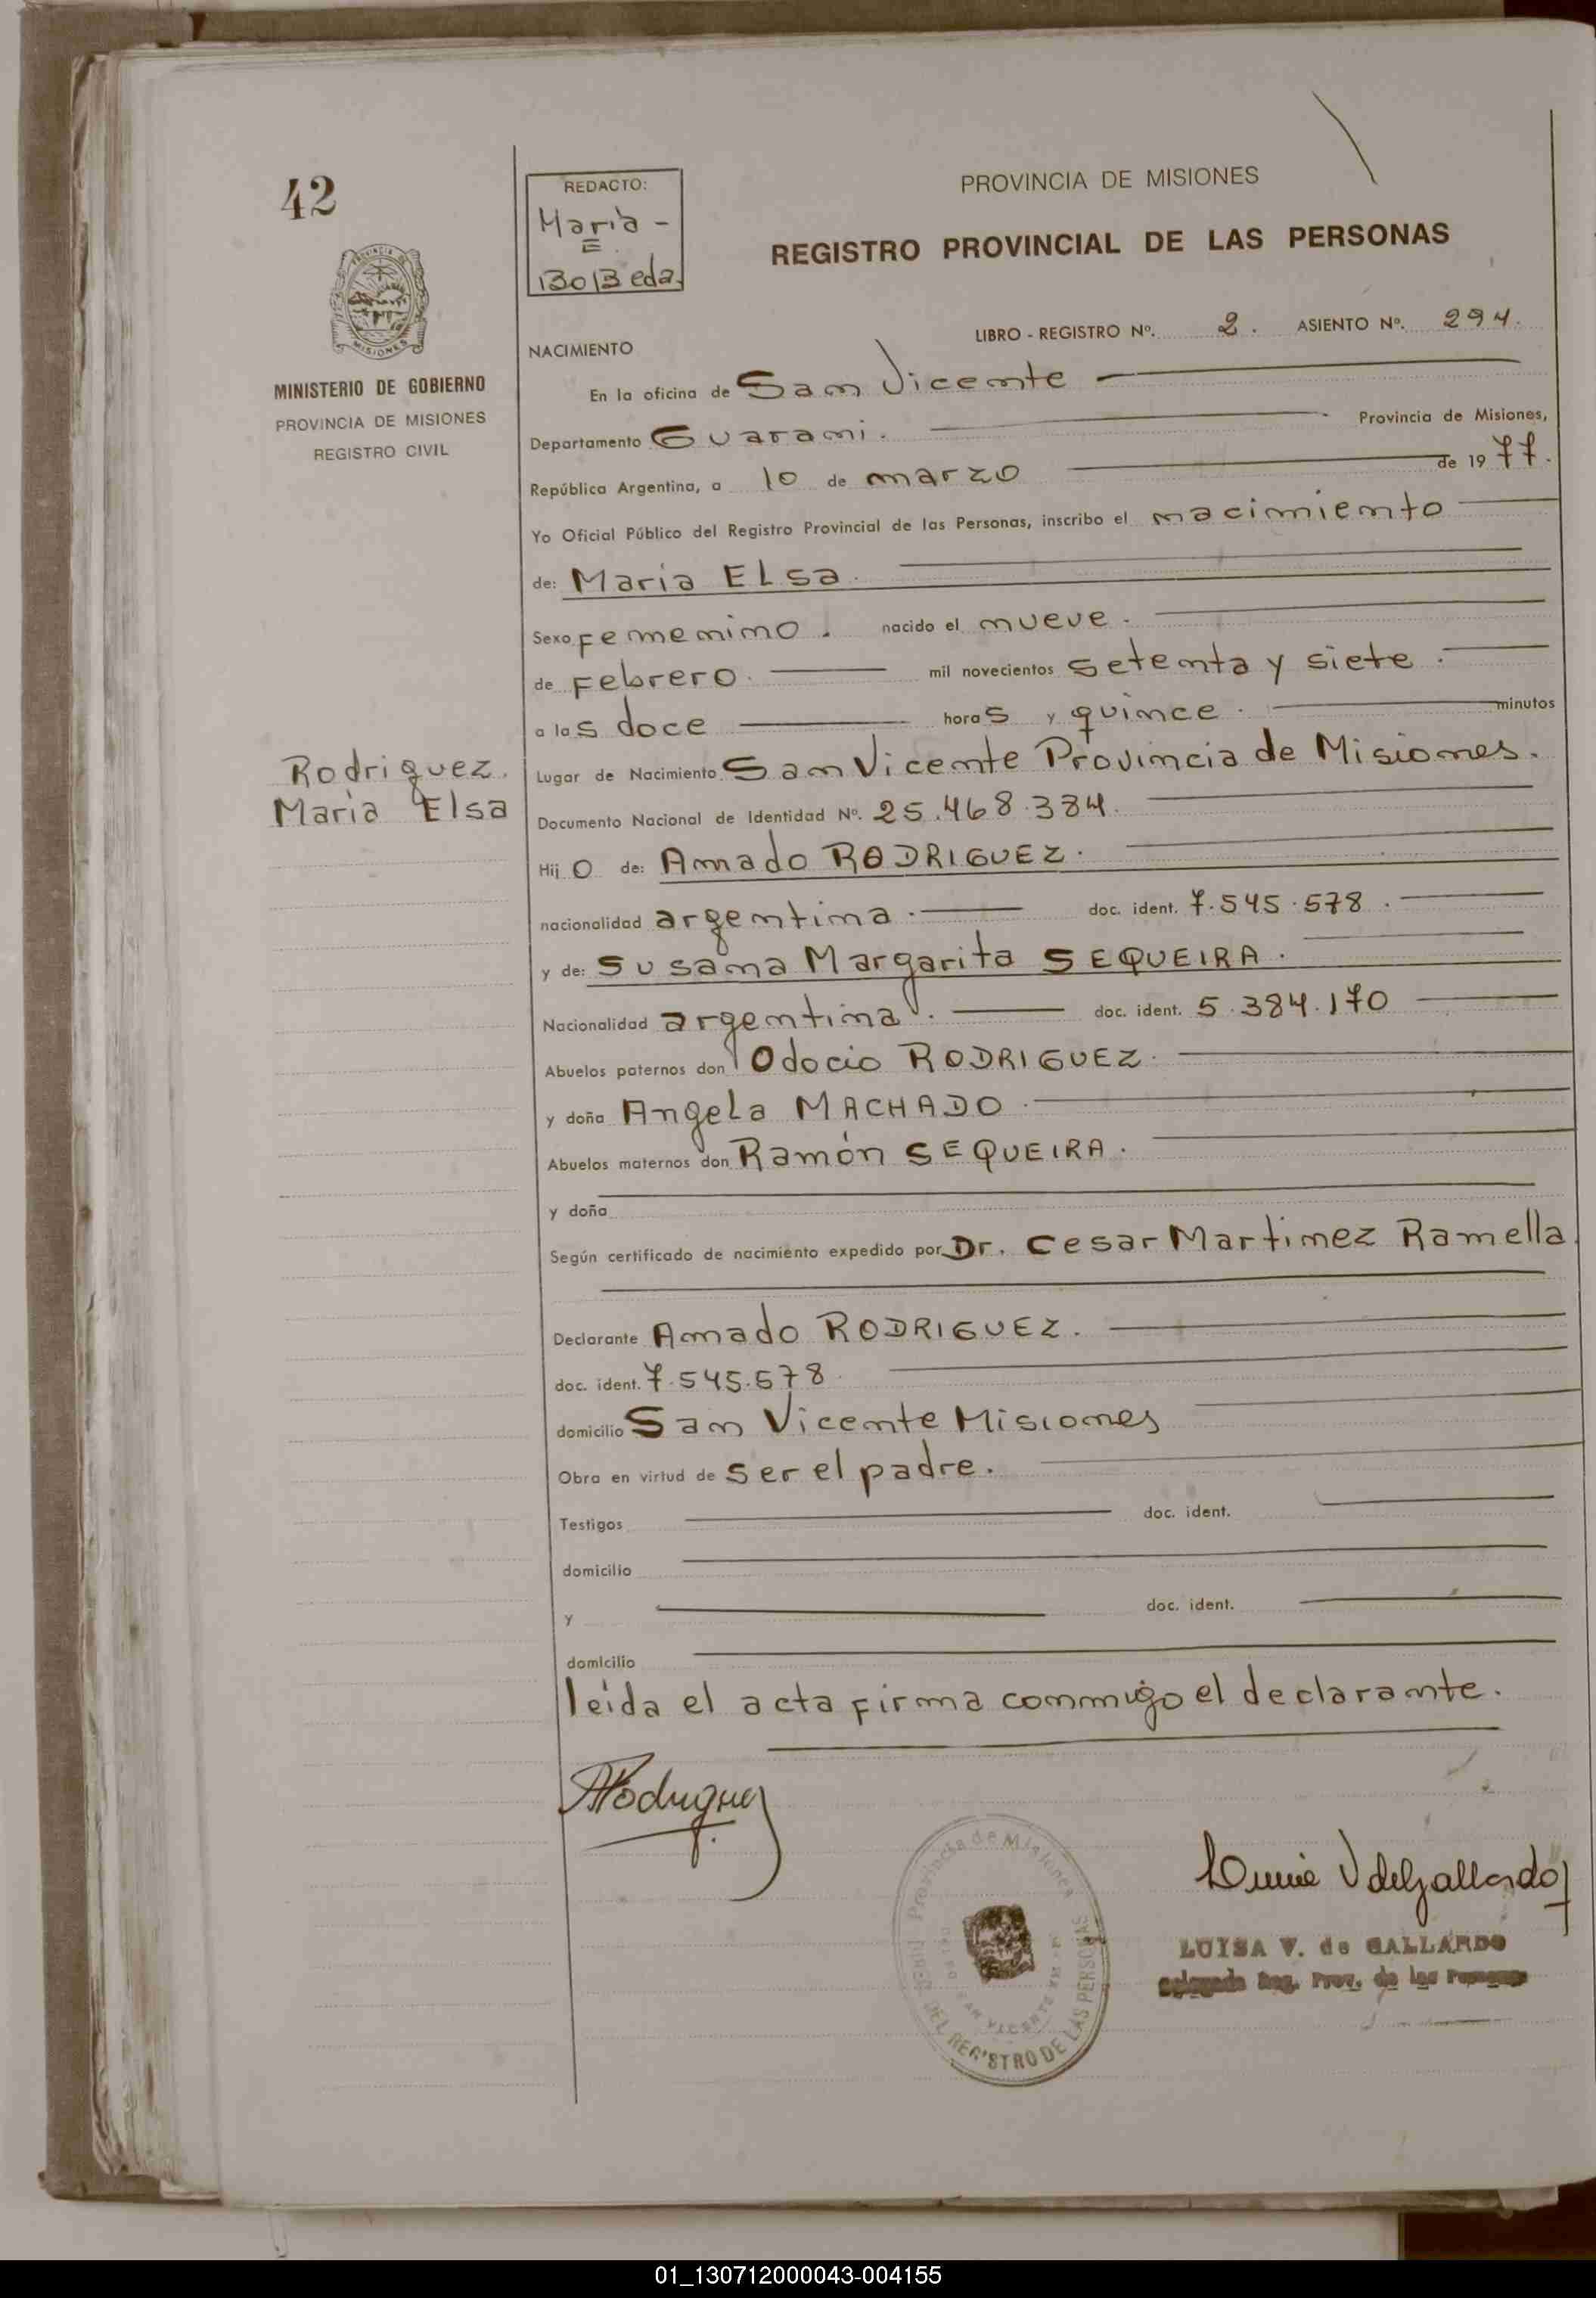 42
PROVINCIA DE MISIONES
REDACTO:
Maria -
E.
Bobeda.
REGISTRO PROVINCIAL DE LAS PERSONAS
MINISTERIO DE GOBIERNO
PROVINCIA DE MISIONES
REGISTRO CIVIL
LIBRO - REGISTRO Nº. 2. ASIENTO Nº. 294.
NACIMIENTO
En la oficina de San Vicente
Departamento Guarani. Provincia de Misiones,
República Argentina, a 10 de marzo de 1977.
Yo Oficial Público del Registro Provincial de las Personas, inscribo el nacimiento
de: Maria Elsa.
Sexo Femenino. nacido el nueve.
de Febrero. mil novecientos setenta y siete.
a las doce horas y quince. minutos
Rodriguez.
Maria Elsa
Lugar de Nacimiento San Vicente Provincia de Misiones.
Documento Nacional de Identidad Nº. 25.468.384.
Hijo de: Amado RODRIGUEZ.
nacionalidad argentina. doc. ident. 7.545.578.
y de: Susana Margarita SEQUEIRA.
Nacionalidad argentina. doc. ident. 5.384.170
Abuelos paternos don Odocio RODRIGUEZ.
y doña Angela MACHADO.
Abuelos maternos don Ramón SEQUEIRA.
y doña
Según certificado de nacimiento expedido por Dr. Cesar Martinez Ramella.
Declarante Amado RODRIGUEZ.
doc. ident. 7.545.578.
domicilio San Vicente Misiones
Obra en virtud de ser el padre.
Testigos doc. ident.
domicilio
y doc. ident.
domicilio
leida el acta firma conmigo el declarante.
ARodriguez
Provincia de Misiones
SAN VICENTE
DEL REGISTRO DE LAS PERSONAS
V de Gallardo
LUISA V. de GALLARDO
Delegada Reg. Prov. de las Personas
01_130712000043-004155